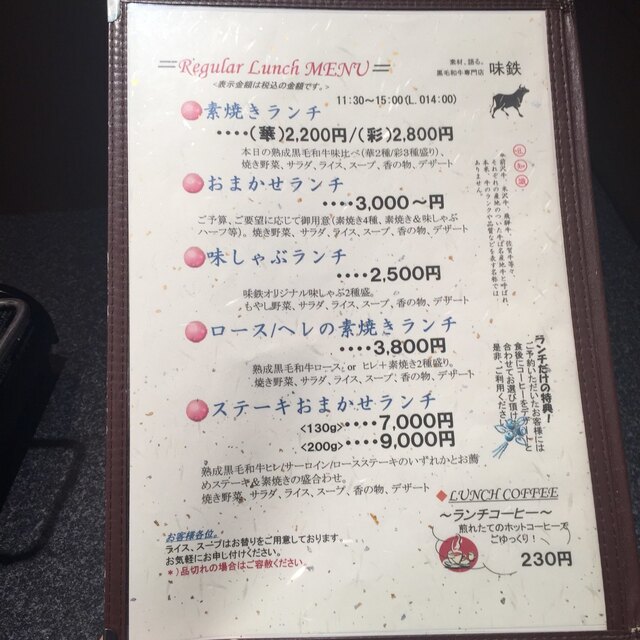 Regular Lunch MENU
<表示金額は税込の金額です。>
素材、語る。
黒毛和牛専門店 味鉄
11:30~15:00(L.O14:00)
素焼きランチ
‥‥(華)2,200円/(彩)2,800円
本日の熟成黒毛和牛味比べ(華2種/彩3種盛り)、
焼き野菜、サラダ、ライス、スープ、香の物、デザート
おまかせランチ
‥‥3,000~円
ご予算、ご要望に応じて御用意(素焼き4種、素焼き&味しゃぶ
ハーフ等)。焼き野菜、サラダ、ライス、スープ、香の物、デザート
味しゃぶランチ
‥‥2,500円
味鉄オリジナル味しゃぶ2種盛。
もやし野菜、サラダ、ライス、スープ、香の物、デザート
ロース/ヘレの素焼きランチ
‥‥3,800円
熟成黒毛和牛ロース or ヒレ+素焼き2種盛り。
焼き野菜、サラダ、ライス、スープ、香の物、デザート
ステーキおまかせランチ
<130g>‥‥7,000円
<200g>‥‥9,000円
熟成黒毛和牛ヒレ/サーロイン/ロースステーキのいずれかとお薦
めステーキ&素焼きの盛合わせ。
焼き野菜、サラダ、ライス、スープ、香の物、デザート
豆知識
米沢牛、飛騨牛、佐賀牛等々、
それぞれの産地のついた牛は名産地牛と呼ばれ、
本来、牛のランクや品質などを表す名称では
ありません。
ランチだけの特典!
ご予約いただいたお客様には
食後にコーヒーをデザートと
合わせてお選び頂け
是非、ご利用くださ
LUNCH COFFEE
~ランチコーヒー~
煎れたてのホットコーヒーで
ごゆっくり!
230円
お客様各位。
ライス、スープはお替りをご用意しております。
お気軽にお申し付けください。
*)品切れの場合はご容赦ください。